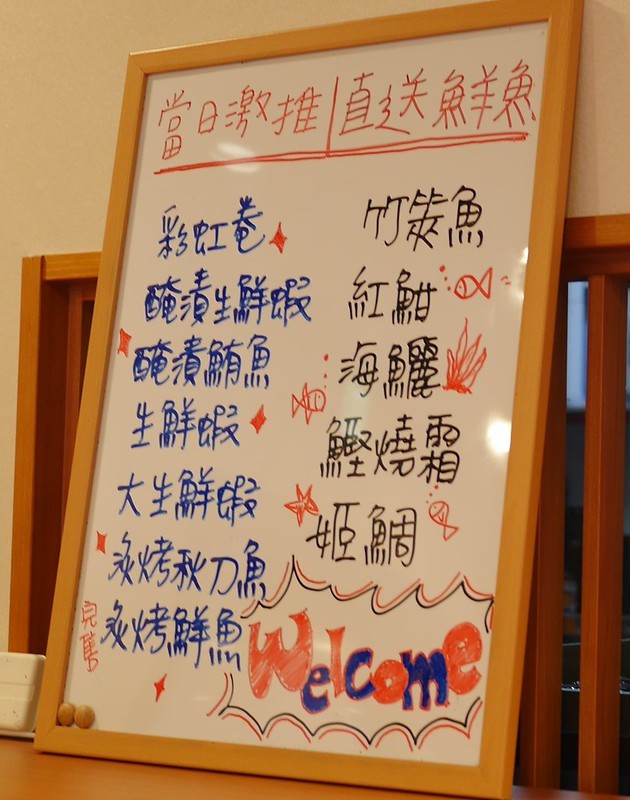 當日激推
彩虹卷
醃漬生鮮蝦
醃漬鮪魚
生鮮蝦
大生鮮蝦
炙烤秋刀魚
炙烤鮮魚
完售
直送鮮魚
竹莢魚
紅魽
海鱺
鰹燒霜
姬鯛
Welcome